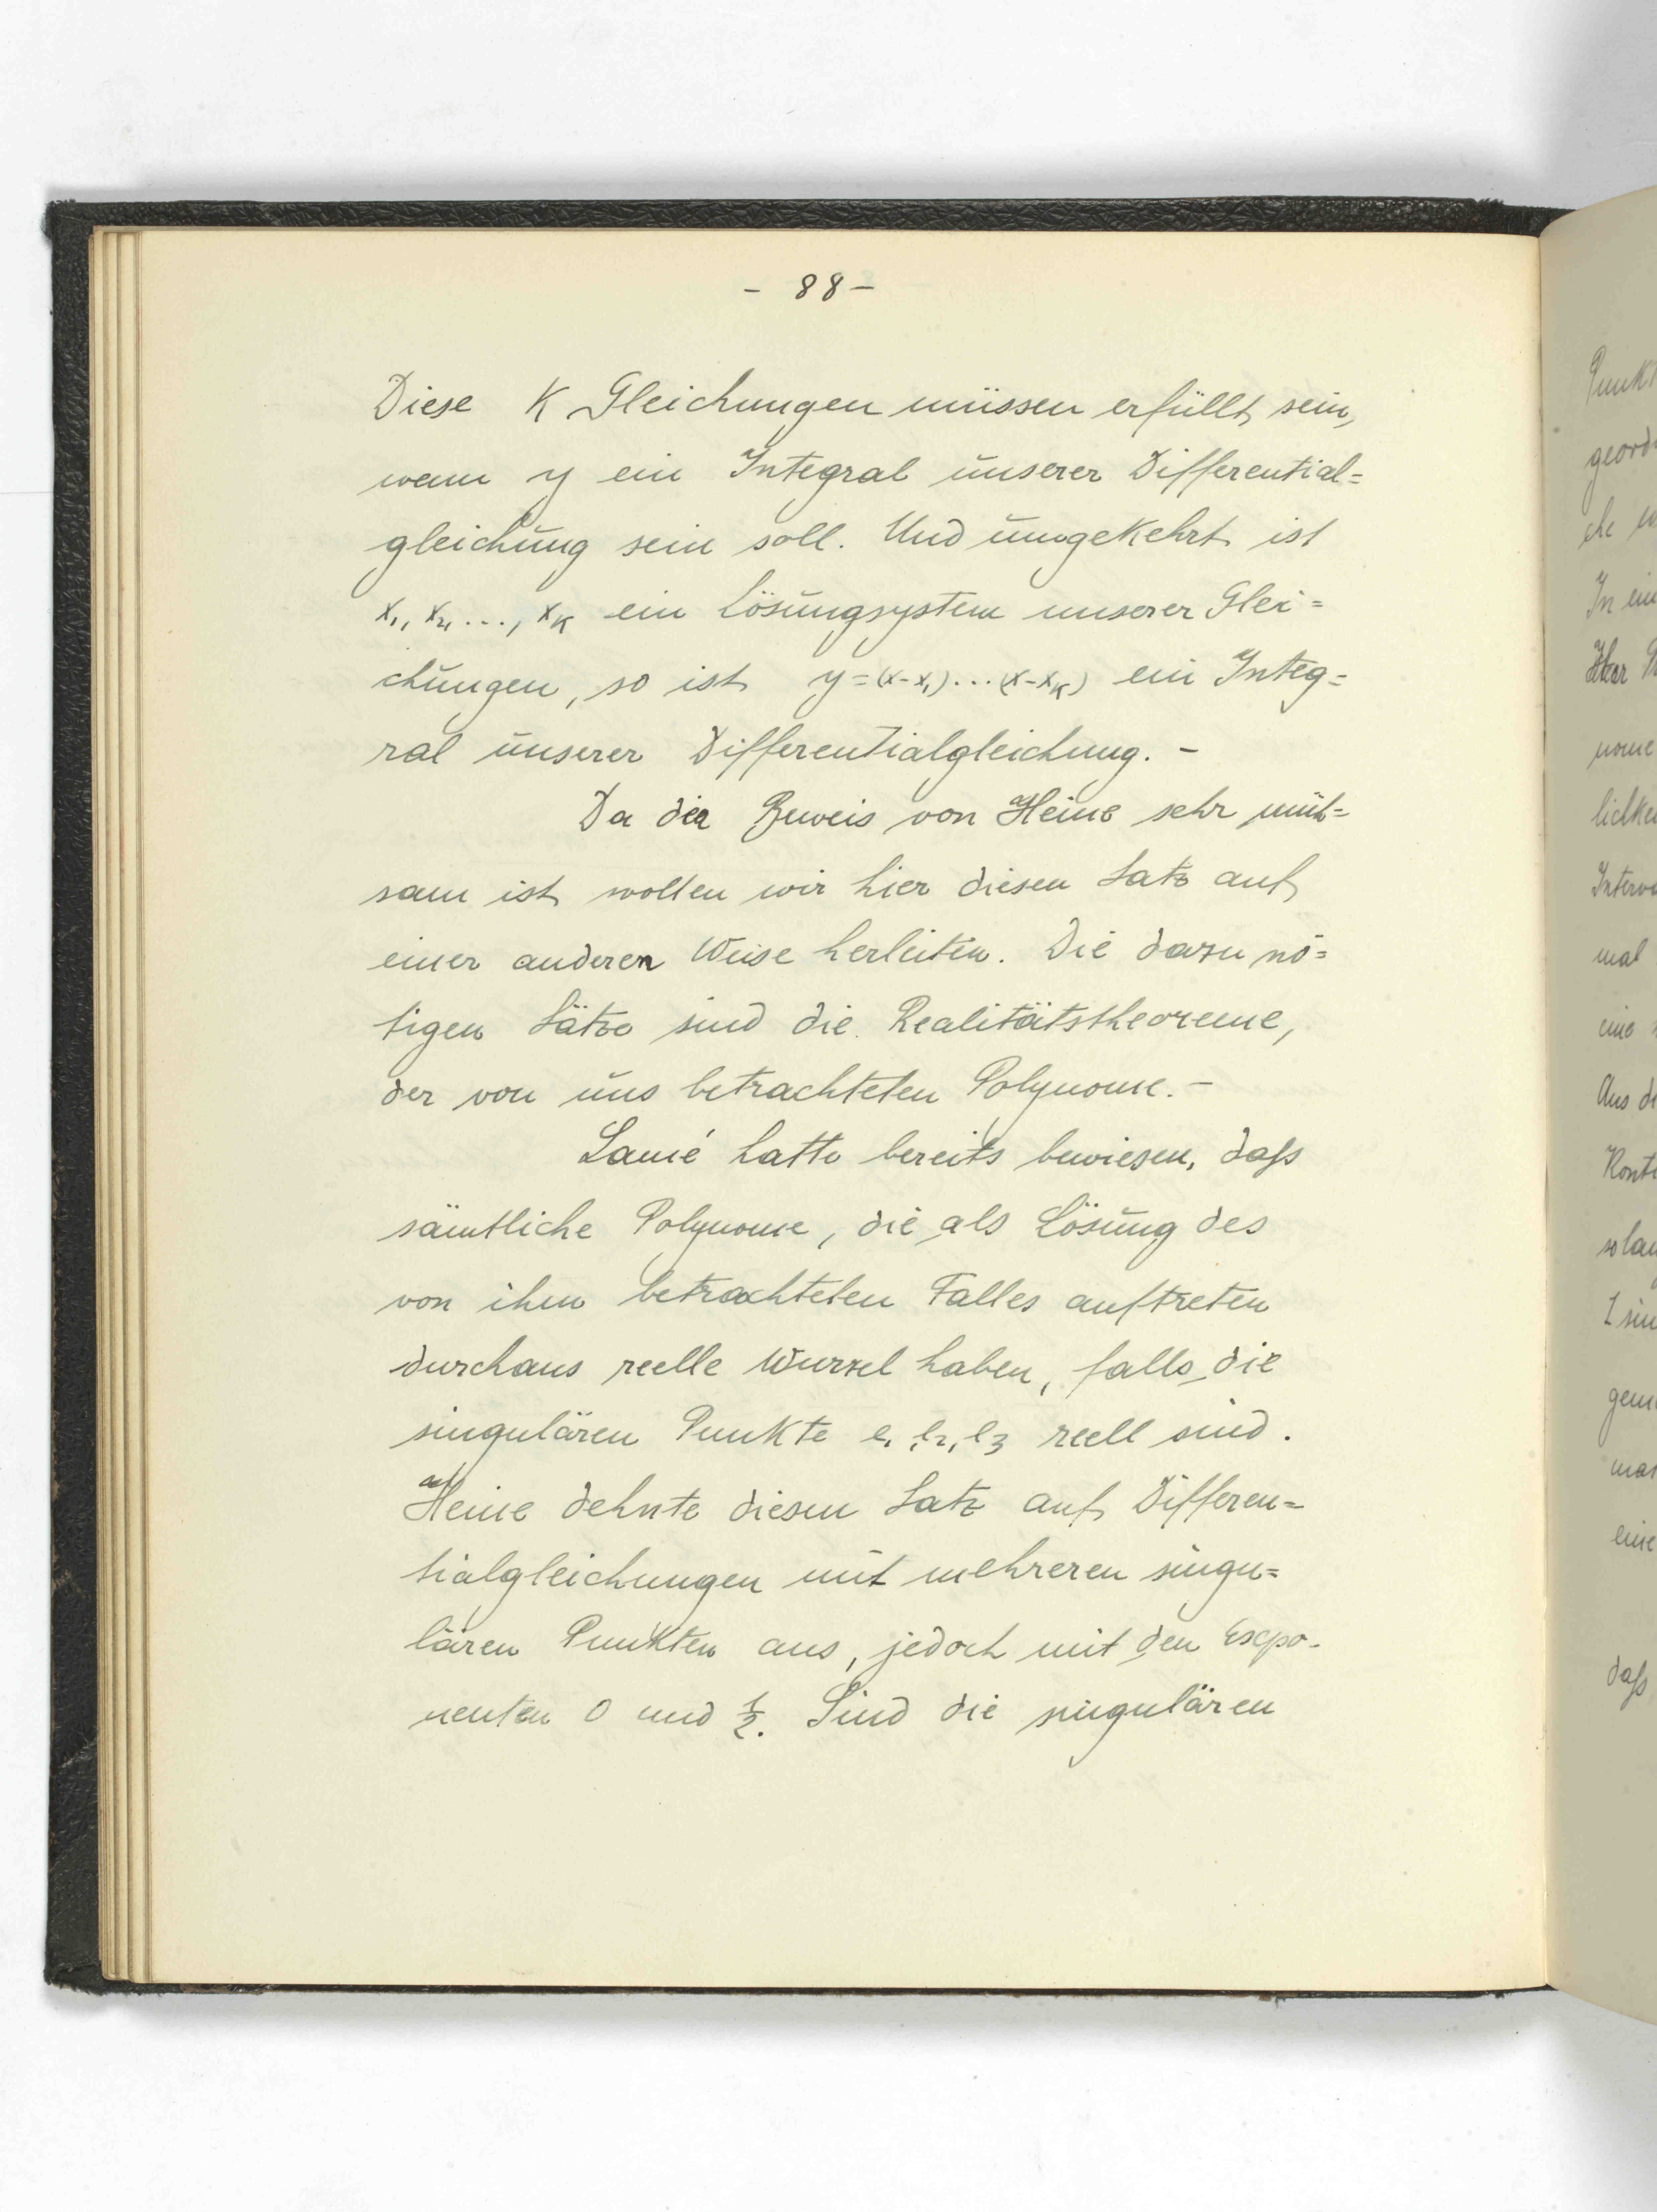 - 88 -
Diese K Gleichungen müssen erfüllt sein,
wenn y ein Integral unserer Differential=
gleichung sein soll. Und umgekehrt ist
x₁, x₂, ..., x_K ein Lösungsystem unserer Glei=
chungen, so ist y=(x-x₁)...(x-x_K) ein Integ=
ral unserer Differentialgleichung. -
Da der Beweis von Heine sehr müh=
sam ist wollen wir hier diesen Satz auf
einer anderen Weise herleiten. Die dazu nö=
tigen Sätze sind die Realitätstheoreme,
der von uns betrachteten Polynome. -
Lamé hatte bereits bewiesen, daß
sämtliche Polynome, die als Lösung des
von ihm betrachteten Falles auftreten
durchaus reelle Wurzel haben, falls die
singulären Punkte e₁, e₂, e₃ reell sind.
Heine dehnte diesen Satz auf Differen=
tialgleichungen mit mehreren singu=
lären Punkten aus, jedoch mit den Expo-
nenten 0 und ½. Sind die singulären
Punkt
geord
che
In ein
nome
lichke
Interv
mal
eine
Aus d
Kont
solan
gem
man
eine
daß